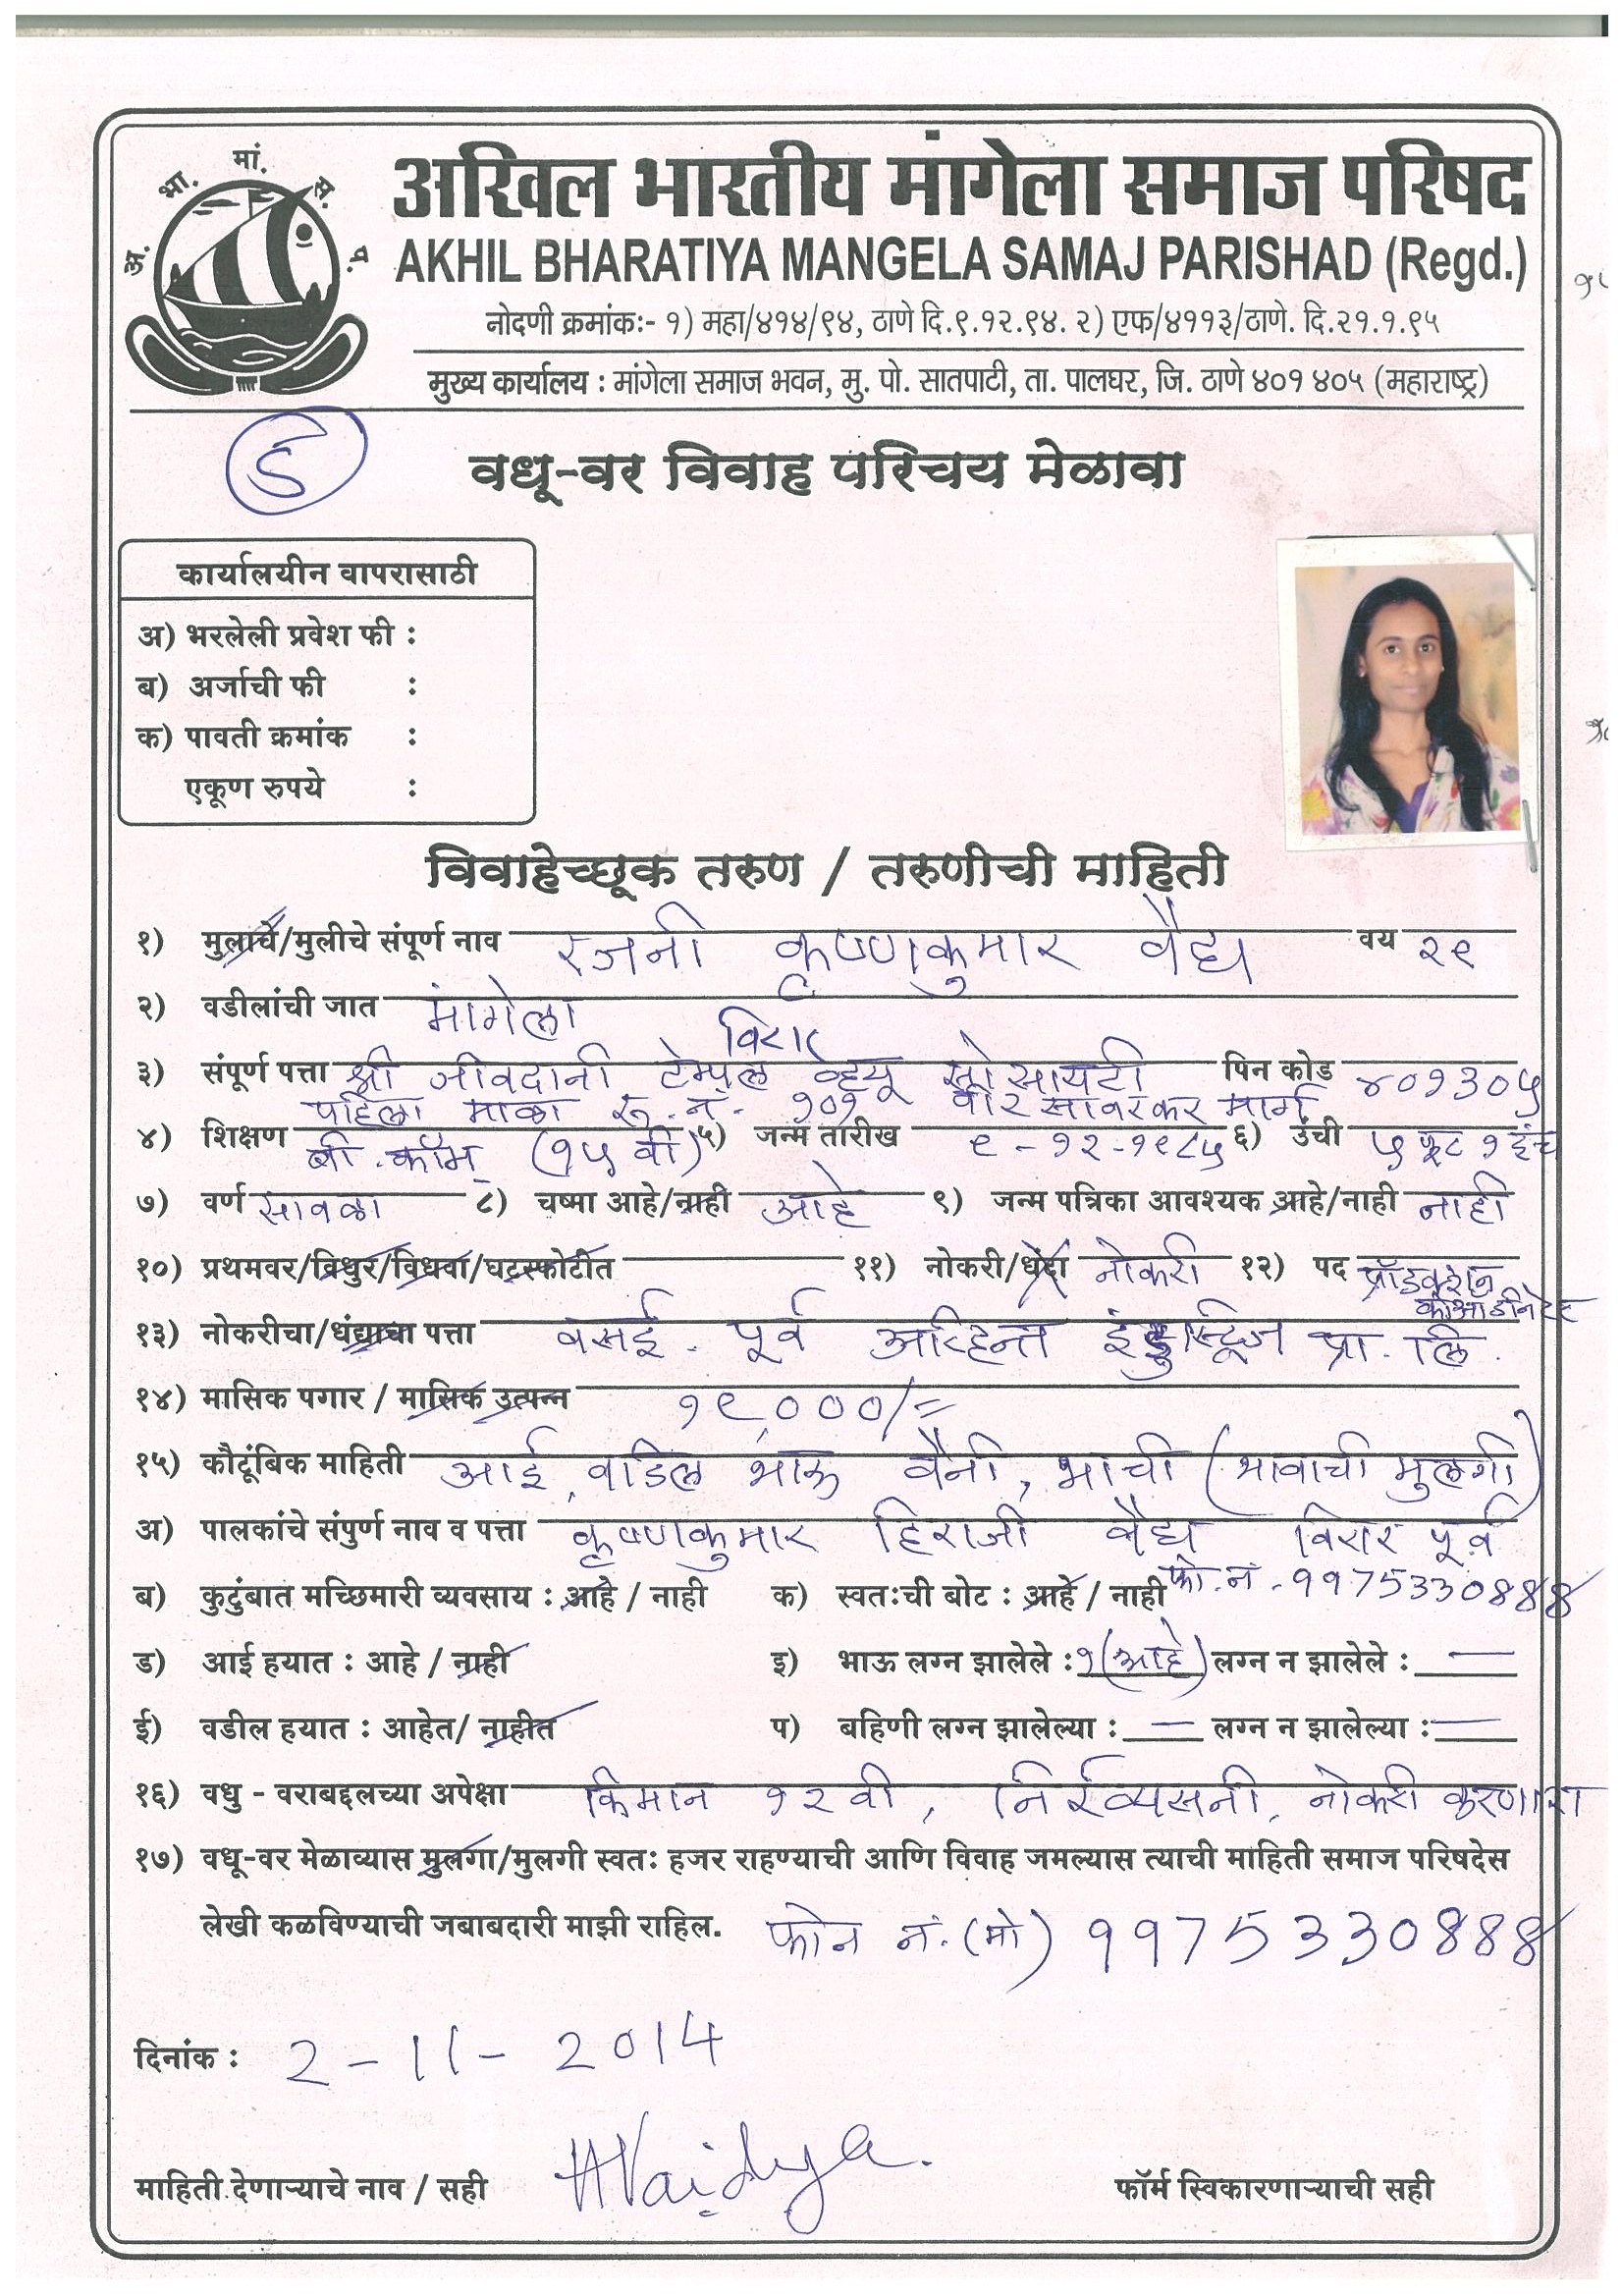 अ. भा. मां. स. प.
अखिल भारतीय मांगेला समाज परिषद
AKHIL BHARATIYA MANGELA SAMAJ PARISHAD (Regd.)
नोदणी क्रमांकः- १) महा/४१४/९४, ठाणे दि.९.१२.९४. २) एफ/४११३/ठाणे. दि.२१.१.९५
मुख्य कार्यालय : मांगेला समाज भवन, मु. पो. सातपाटी, ता. पालघर, जि. ठाणे ४०१ ४०५ (महाराष्ट्र)
वधू-वर विवाह परिचय मेळावा
कार्यालयीन वापरासाठी
अ) भरलेली प्रवेश फी :
ब) अर्जाची फी :
क) पावती क्रमांक :
एकूण रुपये :
विवाहेच्छूक तरुण / तरुणीची माहिती
१) मुलाचे/मुलीचे संपूर्ण नाव रजनी कृष्णकुमार वैद्य वय २९
२) वडीलांची जात मांगेला
विरार
३) संपूर्ण पत्ता श्री जीवदानी टेम्पल व्ह्यू सोसायटी पिन कोड ४०१३०५
पहिला माळा रु.नं. १०१ वीर सावरकर मार्ग
४) शिक्षण बी.कॉम (१५ वी) ५) जन्म तारीख ९-१२-१९८५ ६) उंची ५ फूट १ इंच
७) वर्ण सावळा ८) चष्मा आहे/नाही आहे ९) जन्म पत्रिका आवश्यक आहे/नाही नाही
१०) प्रथमवर/विधुर/विधवा/घटस्फोटीत ११) नोकरी/धंदा नोकरी १२) पद प्रॉडक्शन
कोऑर्डीनेटर
१३) नोकरीचा/धंद्याचा पत्ता वसई. पूर्व अरिहन्त इंडस्ट्रिज प्रा. लि.
१४) मासिक पगार / मासिक उत्पन्न १९,०००/=
१५) कौटूंबिक माहिती आई, वडिल भाऊ वैनी, भाची (भावाची मुलगी)
अ) पालकांचे संपुर्ण नाव व पत्ता कृष्णकुमार हिराजी वैद्य विरार पूर्व
ब) कुटुंबात मच्छिमारी व्यवसाय : आहे / नाही क) स्वतःची बोट : आहे / नाही फो.नं.-9975330888
ड) आई हयात : आहे / नाही इ) भाऊ लग्न झालेले : १(आहे) लग्न न झालेले : —
ई) वडील हयात : आहेत/ नाहीत प) बहिणी लग्न झालेल्या : — लग्न न झालेल्या : —
१६) वधु - वराबद्दलच्या अपेक्षा किमान १२ वी, निर्व्यसनी, नोकरी करणारा
१७) वधू-वर मेळाव्यास मुलगा/मुलगी स्वतः हजर राहण्याची आणि विवाह जमल्यास त्याची माहिती समाज परिषदेस
लेखी कळविण्याची जबाबदारी माझी राहिल. फोन नं.(मो) 9975330888
दिनांक : 2-11-2014
माहिती देणाऱ्याचे नाव / सही Vaidya. फॉर्म स्विकारणाऱ्याची सही